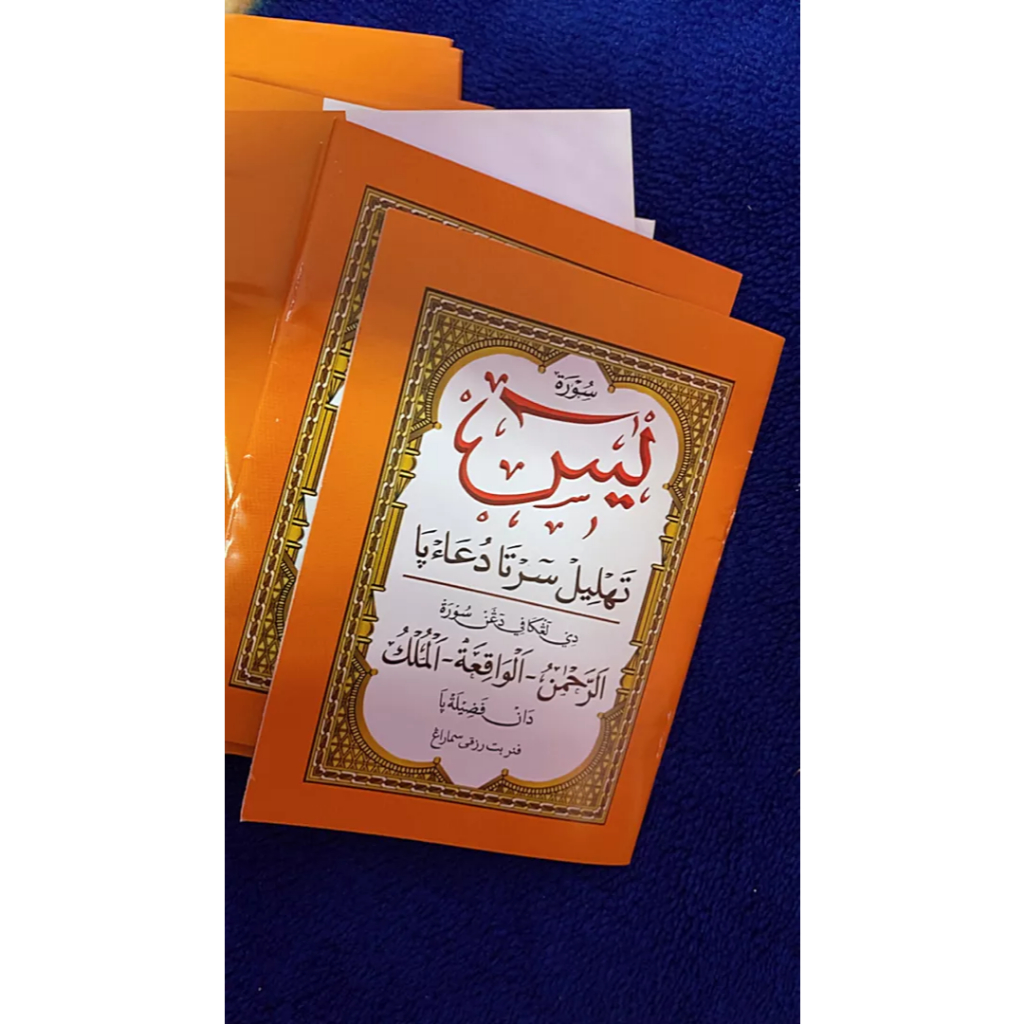 سُوْرَةْ
يٰسٓ
تَهْلِيْلْ سَرْتَا دُعَاءْ پَا
دِيْ لَڠْكَافِيْ دَڠَنْ سُوْرَةْ
اَلرَّحْمٰنُ - اَلْوَاقِعَةُ - اَلْمُلْكُ
دَانْ فَضِيْلَةْ پَا
فنربت رزقى سماراڠ